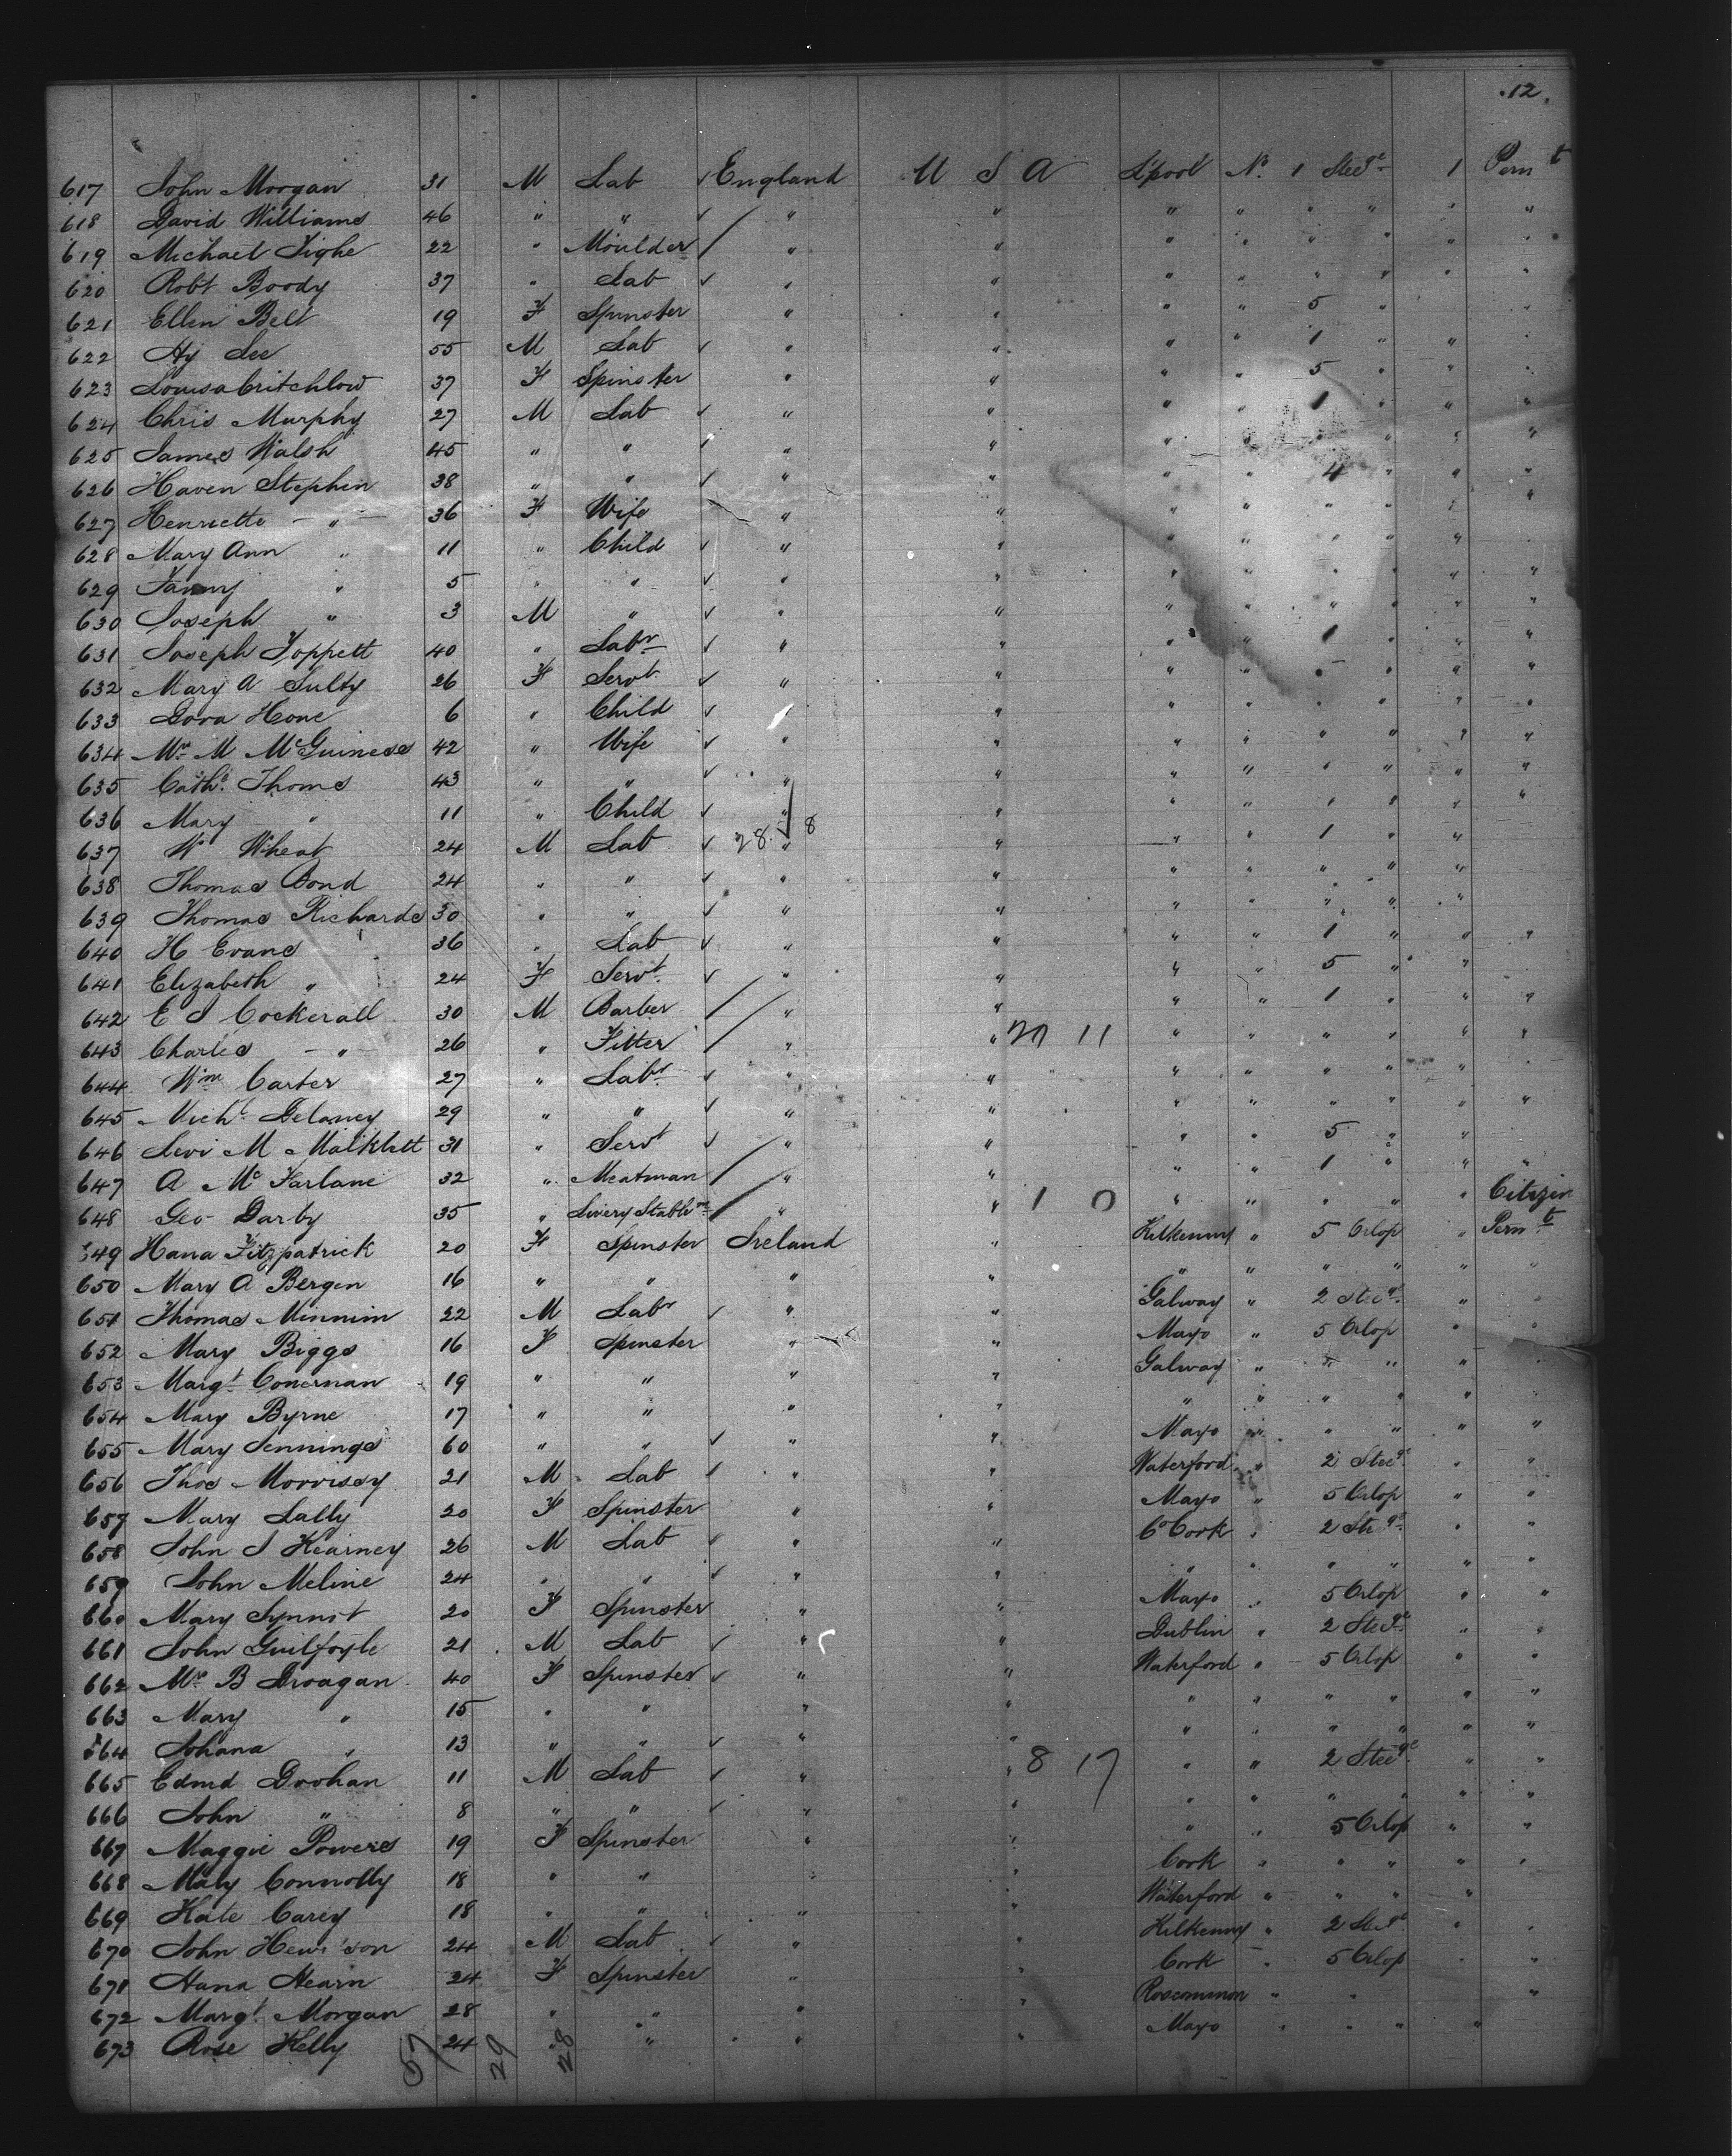 12.
617 John Morgan 31 M Lab England U S A L'pool No. 1 Steege 1 Permt
618 David Williams 46 " " " " " " " " " "
619 Michael Tighe 22 " Moulder " " " " " " " "
620 Robt Boody 37 " Lab " " " " " " " "
621 Ellen Belt 19 F Spinster " " " " 5 "
622 Hy Lee 55 M Lab " " " " 1 " "
623 Louisa Critchlow 37 F Spinster " " " " 5 " " "
624 Chris Murphy 27 M Lab " " " " 1 " " "
625 James Walsh 45 " " " " " " " " "
626 Haven Stephen 38 " " " " " " 4 " " "
627 Henriette " 36 F Wife " " " " " " " "
628 Mary Ann " 11 " Child " " " " " " " "
629 Fanny " 5 " " " " " " " " " "
630 Joseph " 3 M " " " " " " " " "
631 Joseph Toppett 40 " Labr " " " " 1 " " "
632 Mary A Sulty 26 F Servt " " " " " " " "
633 Dora Hone 6 " Child " " " " " " " "
634 Mrs M McGuiness 42 " Wife " " " " " " " "
635 Cathe Thoms 43 " " " " " " " " " "
636 Mary " 11 " Child " " " " " " " "
637 Wm Wheat 24 M Lab 28 " 8 " " " 1 " "
638 Thomas Bond 24 " " " " " " " " "
639 Thomas Richards 30 " " " " " " " " "
640 H Evans 36 " Lab " " " " 1 " " "
641 Elizabeth " 24 F Servt " " " " 5 " "
642 E J Cockerall 30 M Barber " " " " 1 " " "
643 Charles " 26 " Fitter " " 20 11 " " " " " "
644 Wm Carter 27 " Labr " " " " " " "
645 Michl Delaney 29 " " " " " " " " " "
646 Levi M 31 " Servt " " " " 5 " "
647 A McFarlane 32 " Meatman " " " " 1 " " "
648 Geo Darby 35 " Livery Stablem " " 1 0 " " " " " Citizin
649 Hana Fitzpatrick 20 F Spinster Ireland " Kilkenny " 5 Orlop " Permt
650 Mary A Bergen 16 " " " " " " " " " "
651 Thomas Minnim 22 M Labr " " Galway " 2 Steege " "
652 Mary Biggs 16 F Spinster " " Mayo " 5 Orlop " "
653 Margt Conernan 19 " " " " Galway " " " " "
654 Mary Byrne 17 " " " " " " " " " "
655 Mary Jennings 60 " " " " Mayo " " " " "
656 Thos Morrissy 21 M Lab " " Waterford " 2 Steege " "
657 Mary Lally 20 F Spinster " " Mayo " 5 Orlop " "
658 John J Kearney 26 M Lab " " Co Cork " 2 Steege " "
659 John Meline 24 " " " " " " " " " "
660 Mary Synnot 20 F Spinster " " Mayo " 5 Orlop " "
661 John Guilfoyle 21 M Lab " " Dublin " 2 Steege " "
662 Mrs B Droagan 40 F Spinster " " Waterford " 5 Orlop " "
663 Mary " 15 " " " " " " " " " "
664 Johana " 13 " " " " " " " " " "
665 Edmd Doohan 11 M Lab " " 8 17 " " 2 Steege " "
666 John " 8 " " " " " " " " " "
667 Maggie Powers 19 F Spinster " " " " 5 Orlop " "
668 Mary Connolly 18 " " " " Cork " " " " "
669 Kate Carey 18 " " " " Waterford " " " "
670 John 24 M Lab " " Kilkenny " 2 Steege " "
671 Hana Hearn 24 F Spinster " " Cork " 5 Orlop " "
672 Margt Morgan 28 " " " " Roscommon " " "
673 Rose Kelly 24 " " " " Mayo " " " "
57 29 28